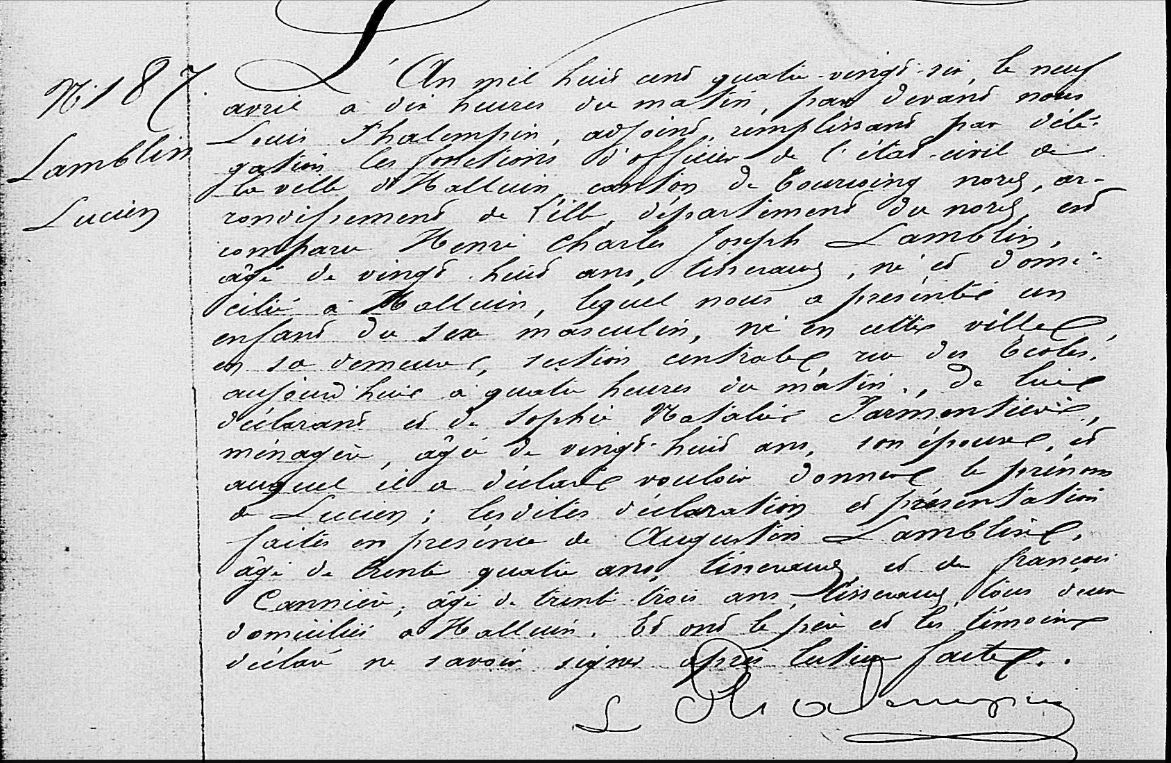 N° 187.
Lamblin
Lucien
L'An mil huit cent quatre-vingt-six, le neuf
avril à dix heures du matin par devant nous
Louis Phalempin, adjoint, remplissant par délé-
gation les fonctions d'officier de l'état-civil de
la ville d'Halluin, canton de Tourcoing nord, ar-
rondissement de Lille, département du nord, est
comparu Henri Charles Joseph Lamblin,
âgé de vingt-huit ans, tisserand, né et domi-
cilié à Halluin, lequel nous a présenté un
enfant du sexe masculin, né en cette ville,
en sa demeure, section centrale, rue des Ecoles,
aujourd'hui à quatre heures du matin, de lui
déclarant et de Sophie Natalie Parmentier,
ménagère, âgée de vingt-huit ans, son épouse, et
auquel il a déclaré vouloir donner le prénom
de Lucien; lesdites déclaration et présentation
faites en présence de Augustin Lamblin,
âgé de trente quatre ans, tisserand et de françois
Cannière, âgé de trente trois ans, tisserand, tous deux
domiciliés à Halluin. Et ont le père et les témoins
déclaré ne savoir signer après lecture faite.
L Phalempin